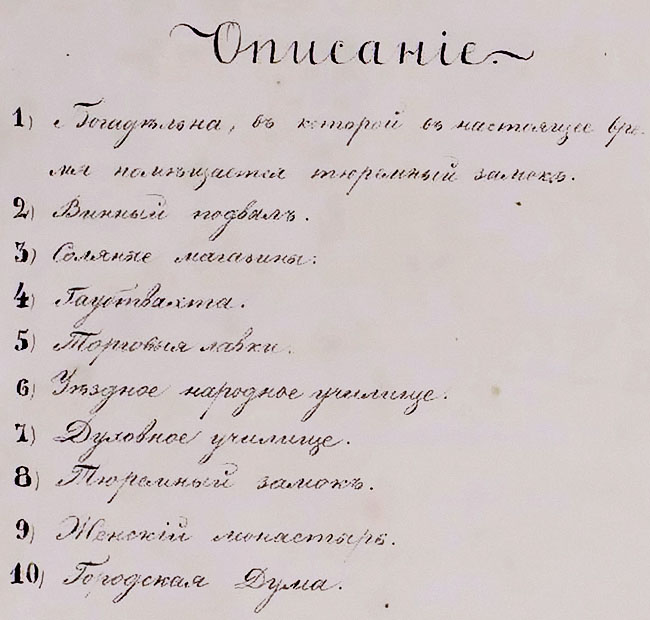 Описаніе.
1) Богадѣльна, въ которой въ настоящее вре-
мя помѣщается тюремный замокъ.
2) Винный подвалъ.
3) Соляные магазины.
4) Гауптвахта.
5) Торговыя лавки.
6) Уѣздное народное училище.
7) Духовное училище.
8) Тюремный замокъ.
9) Женскій монастырь.
10) Городская Дума.